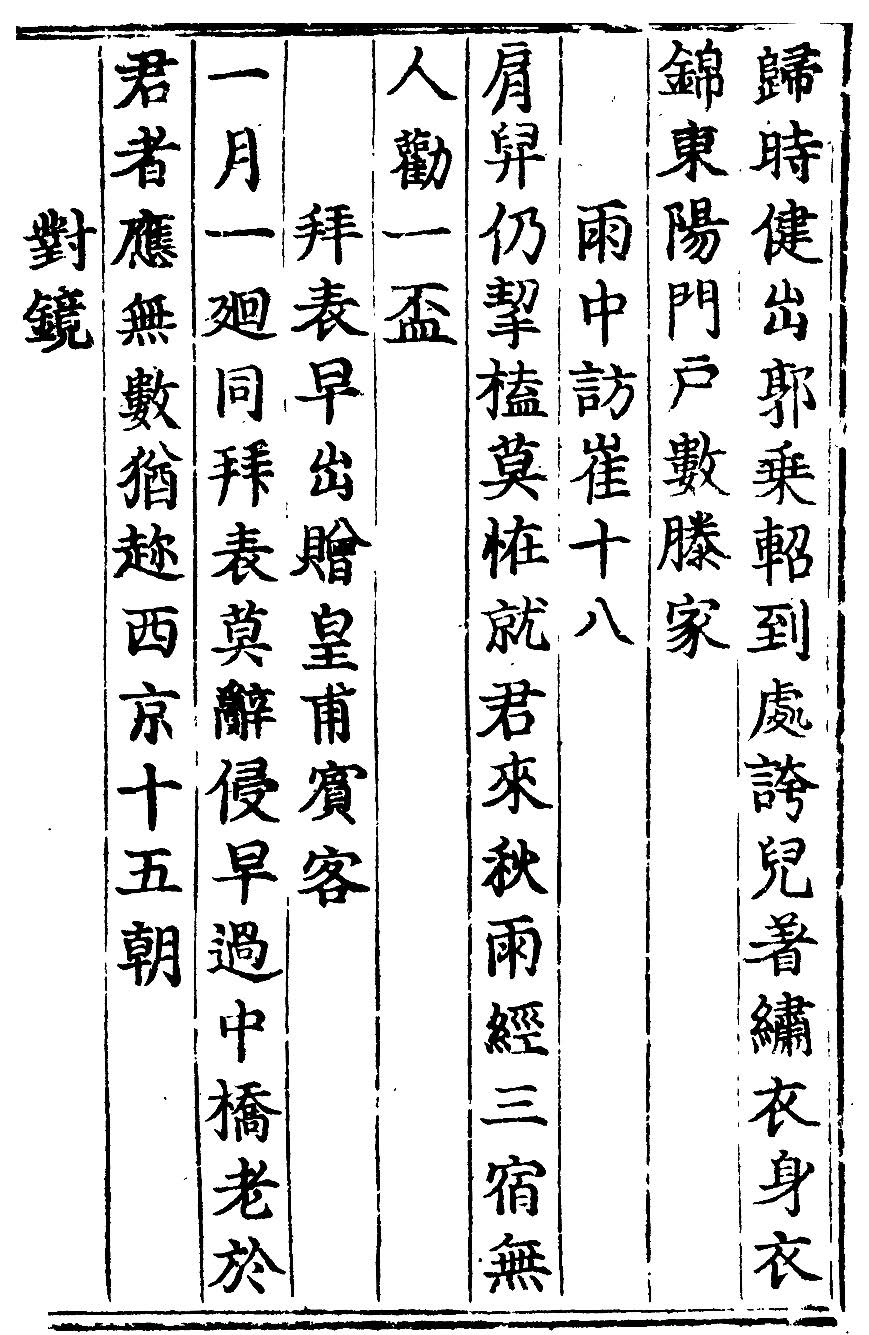 歸時健出郭乗軺到處誇兒著繡衣身衣
錦東陽門戸數滕家
雨中訪崔十八
肩舁仍挈榼莫恠就君來秋雨經三宿無
人勸一盃
拜表早出贈皇甫賓客
一月一廻同拜表莫辭侵早過中橋老於
君者應無數猶趂西京十五朝
對鏡